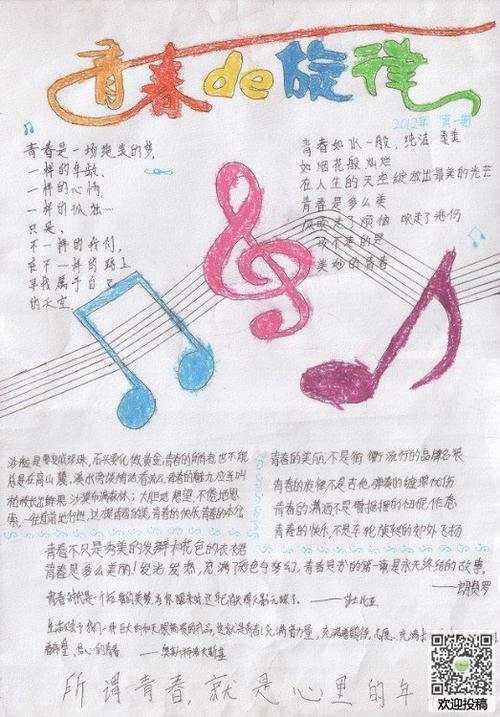 青春de旋律
2012年 第一期
青春是一场绝美的梦,
一样的年龄、
一样的心情、
一样的孤独…
只是,
不一样的我们,
在不一样的路上
寻找属于自己
的天空
青春如水一般,纯洁 柔美
如烟花般灿烂
在人生的天空绽放出最美的光芒
青春是多么美
风吹走了烦恼 吹走了悲伤
吹不走的是
美妙的青春
沙粒是要变成珍珠,石头要化做黄金;青春的所有者也不能
总是在高山麓、溪水旁谈情话、看流云;青春的魅力,应当叫
枯枝长出鲜果,沙漠布满森林;大胆地想望,不倦地思
索,一往直前地行进,这才是青春的美,青春的快乐,青春的本分
青春的美丽,不是街衢流行的品牌名装
青春的旋律,不是吉他弹奏的缠绵忧伤
青春的潇洒,不是
青春的快乐,不是车轮旋转的郊外飞扬
青春不只是秀美的发辫和花色的衣裙
青春是多么美丽!发光发热,充满了彩色与梦幻,青春是书的第一章,是永无终结的故事。
——朗费罗
青春时代是一个短暂的美梦,当你醒来时,这早已消失得无影无踪了。——莎士比亚
生活赋予我们一种巨大的和无限高贵的礼品,这就是青春!充满着力量,充满着期待、志愿、充满
——奥斯特洛夫斯基
所谓青春,就是心里的年
欢迎投稿